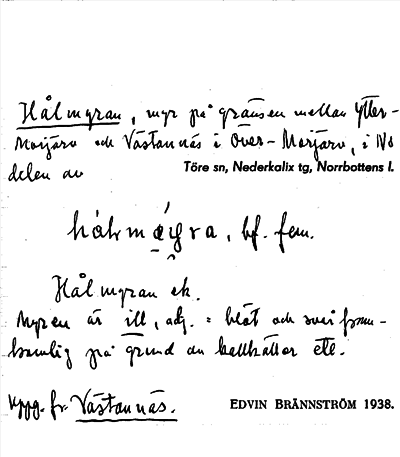 Hålmyran, myr på gränsen mellan Ytter-
Morjärv och Västannäs i Över-Morjärv, i NV
delen av Töre sn, Nederkalix tg, Norrbottens l.
bf. fem.
Hålmyran ek.
Myren är ill, adj. = blöt och svårfram-
komlig på grund av kallkällor etc.
Uppg. fr. Västannäs. EDVIN BRÄNNSTRÖM 1938.